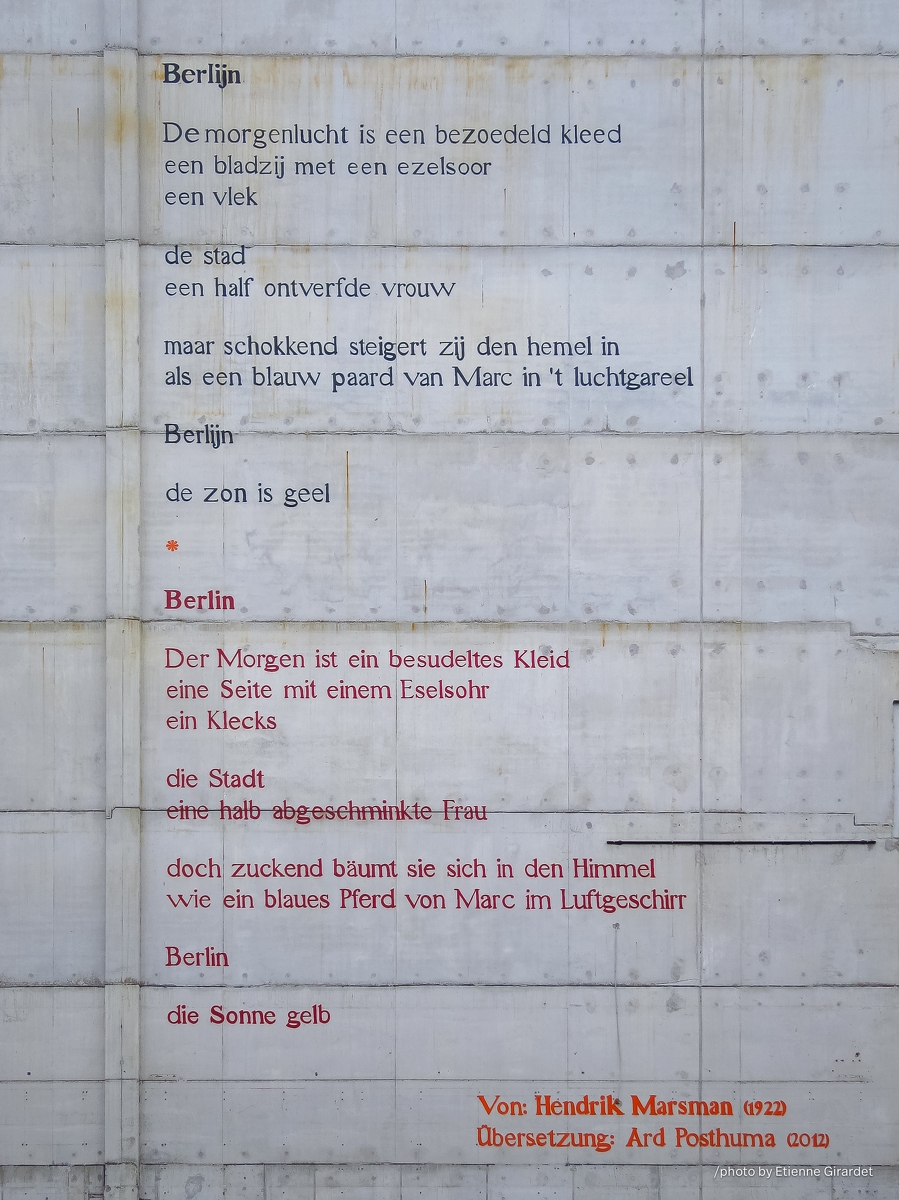 Berlijn
De morgenlucht is een bezoedeld kleed
een bladzij met een ezelsoor
een vlek
de stad
een half ontverfde vrouw
maar schokkend steigert zij den hemel in
als een blauw paard van Marc in 't luchtgareel
Berlijn
de zon is geel
*
Berlin
Der Morgen ist ein besudeltes Kleid
eine Seite mit einem Eselsohr
ein Klecks
die Stadt
eine halb abgeschminkte Frau
doch zuckend bäumt sie sich in den Himmel
wie ein blaues Pferd von Marc im Luftgeschirr
Berlin
die Sonne gelb
Von: Hendrik Marsman (1922)
Übersetzung: Ard Posthuma (2012)
/photo by Etienne Girardet